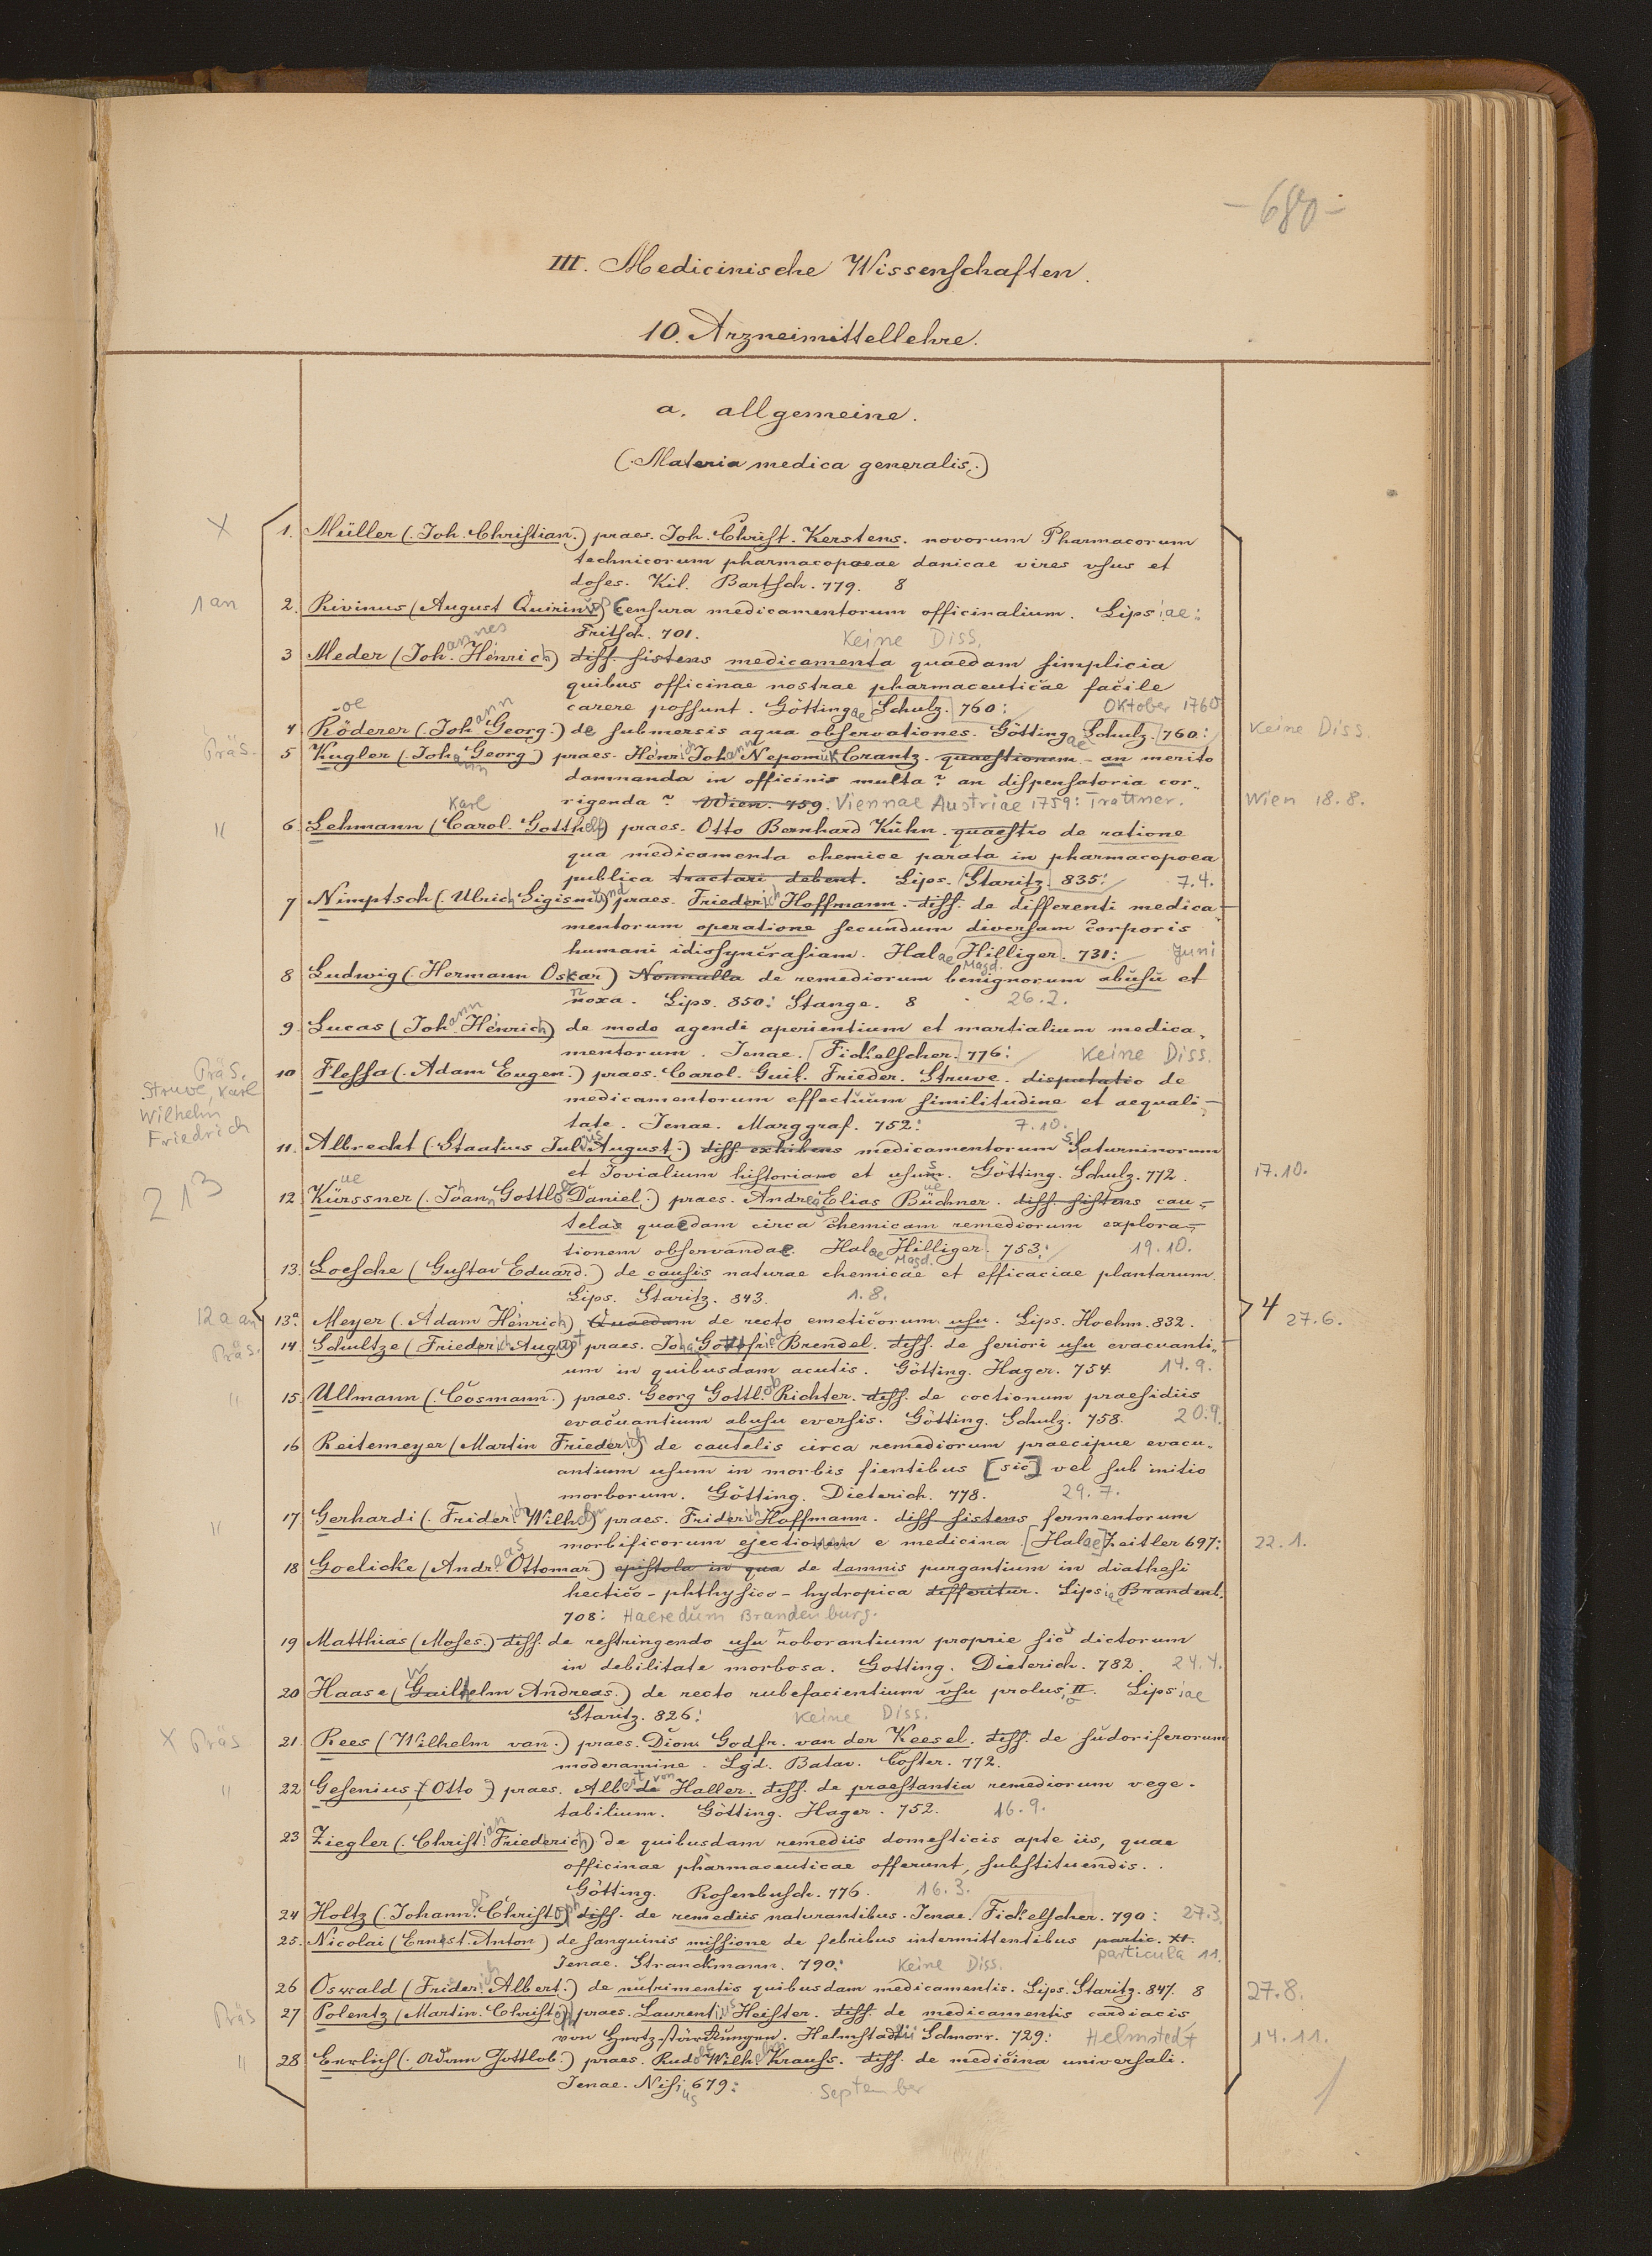 - 680 -
III. Medicinische Wissenschaften.
10. Arzneimittellehre.
a. allgemeine.
(Materia medica generalis.)
X 1. Müller (Joh. Christian.) praes. Joh. Christ. Kerstens. novorum Pharmacorum
technicorum pharmacopoeae danicae vires vsus et
doses. Kil. Bartsch. 779. 8
1 an 2. Rivinus (August Quirinus) Censura medicamentorum officinalium. Lipsiae:
Fritsch. 701. Keine Diss.
3 Meder (Johannes Henrich) diss. sistens medicamenta quaedam simplicia
quibus officinae nostrae pharmaceuticae facile
carere possunt. Göttingae Schulz. 760: Oktober 1760
4 Röderer (Johann Georg.) de submersis aqua observationes. Göttingae Schulz. 760: Keine Diss.
Präs. 5 Kugler (Johann Georg) praes. Henrich Johann Nepomuk Crantz. quaestionem - an merito
damnanda in officinis multa? an dispensatoria cor-
rigenda? Wien. 759. Viennae Austriae 1759: Trattner. Wien 18.8.
Karl
" 6. Lehmann (Carol. Gotthelf) praes. Otto Bernhard Kühn. quaestio de ratione
qua medicamenta chemice parata in pharmacopoea
publica tractari debent. Lips. Staritz 835: 7.4.
7 Nimptsch (Ulrich Sigismund) praes. Friederich Hoffmann. diss. de differenti medica-
mentorum operatione secundum diversam corporis
humani idiosyncrasiam. Halae Magd. Hilliger. 731: Juni
8 Ludwig (Hermann Oskar) Nonnulla de remediorum benignorum abusu et
noxa. Lips. 850: Stange. 8 26.2.
9. Lucas (Johann Henrich) de modo agendi aperientium et martialium medica-
mentorum. Jenae. Fickelscher. 776: Keine Diss.
Präs. Struve, Karl Wilhelm Friedrich
10 Flessa (Adam Eugen.) praes. Carol. Guil. Frieder. Struve. disputatio de
medicamentorum effectuum similitudine et aequali-
tate. Jenae. Marggraf. 752: 7.10.
11. Albrecht (Staatius Julius August.) diss. exhibens medicamentorum Saturninorum
et Jovialium historiam et usum. Götting. Schulz. 772. 17.10.
213
12 Kürssner (Johann Gottlob Daniel.) praes. Andreas Elias Büchner. diss. sistens cau-
telas quaedam circa chemicam remediorum explora-
tionem observandae. Halae Magd. Hilliger. 753: 19.10.
13. Loesche (Gustav Eduard.) de causis naturae chemicae et efficaciae plantarum.
Lips. Staritz. 843. 1.8.
12 a an 13a. Meyer (Adam Henrich) Quaedam de recto emeticorum usu. Lips. Hoehm. 832. 4 27.6.
Präs. 14. Schultze (Friederich August) praes. Johann Gottfried Brendel. diss. de seriori usu evacuanti-
um in quibusdam acutis. Götting. Hager. 754. 14.9.
" 15. Ullmann (Cosmann.) praes. Georg Gottlob Richter. diss. de coctionum praesidiis
evacuantium abusu eversis. Götting. Schulz. 758. 20.9.
16 Reitemeyer (Martin Friederich) de cautelis circa remediorum praecipue evacu-
antium usum in morbis fientibus [sic] vel sub initio
morborum. Götting. Dieterich. 778. 29.7.
" 17. Gerhardi (Friderich Wilhelm) praes. Friderich Hoffmann. diss. sistens fermentorum
morbificorum ejectionem e medicina. [Halae] Zeitler 697: 22.1.
18 Goelicke (Andreas Ottomar) epistola in qua de damnis purgantium in diathesi
hectico-phthysico-hydropica disseritur. Lipsiae Brandenb.
708: Haeredum Brandenburg.
19 Matthias (Moses.) diss. de restringendo usu roborantium proprie sic dictorum
in debilitate morbosa. Gotting. Dieterich. 782. 24.4.
20 Haase (Wilhelm Andreas.) de recto rubefacientium vsu prolus. II. Lipsiae
Staritz. 826: Keine Diss.
X Präs 21. Rees (Wilhelm van.) praes. Dion. Godfr. van der Keesel. diss. de sudoriferorum
moderamine. Lgd. Batav. Coster. 772.
" 22 Gesenius (Otto) praes. Albert von Haller. diss. de praestantia remediorum vege-
tabilium. Götting. Hager. 752. 16.9.
23 Ziegler (Christian Friederich) de quibusdam remediis domesticis apte iis, quae
officinae pharmaceuticae offerunt, substituendis.
Götting. Rosenbusch. 776. 16.3.
24 Holtz (Johannes Christoph) diss. de remediis naturantibus. Jenae. Fickelscher. 790: 27.3.
25. Nicolai (Ernest. Anton) de sanguinis missione de febribus intermittentibus partic. XI.
Jenae. Stranckmann. 790: Keine Diss. particula 11.
26 Oswald (Friderich Albert.) de nutrimentis quibusdam medicamentis. Lips. Staritz. 847. 8 27.8.
Präs 27 Polentz (Martin. Christoph) praes. Laurentius Heister. diss. de medicamentis cardiacis
von Hertz-stärckungen. Helmstadii Schnorr. 729: Helmstedt 14.11.
" 28 Ehrlich (Adam Gottlob.) praes. Rudolf Wilhelm Krauss. diss. de medicina universali.
Jenae. Nisius 679: September